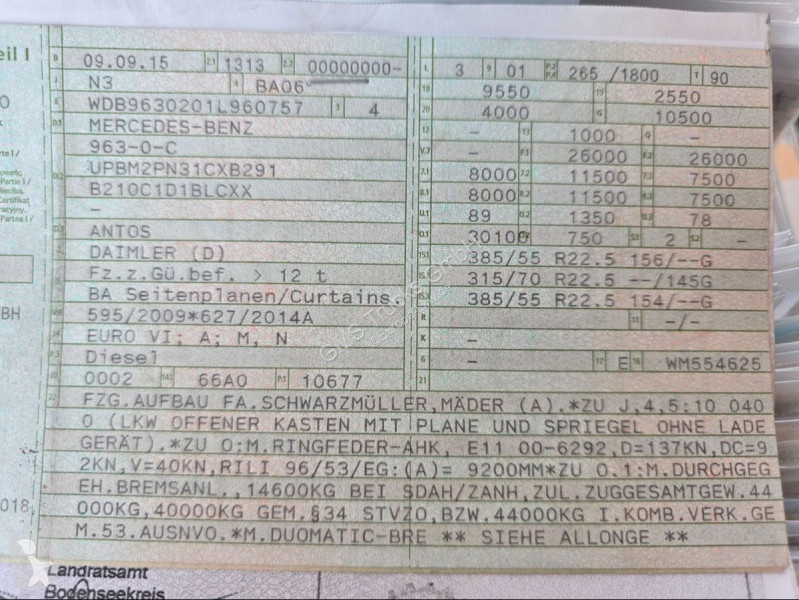 eil I
B 09.09.15 2.1 1313 2.2 00000000- L 3 9 01 P.2 P.4 265 /1800 T 90
J N3 4 BA06 18 9550 19 2550
E WDB9630201L960757 3 4 20 4000 G 10500
D.1 MERCEDES-BENZ 12 - 13 1000 Q -
963-0-C V.7 - F.1 26000 F.2 26000
D.2 UPBM2PN31CXB291 7.1 8000 7.2 11500 7.3 7500
B210C1D1BLCXX 8.1 8000 8.2 11500 8.3 7500
- U.1 89 U.2 1350 U.3 78
D.3 ANTOS O.1 30100 O.2 750 S.1 2 S.2 -
2 DAIMLER (D) 15.1 385/55 R22.5 156/--G
5 Fz.z.Gü.bef. > 12 t 15.2 315/70 R22.5 --/145G
BA Seitenplanen/Curtains. 15.3 385/55 R22.5 154/--G
BH
V.9 595/2009*627/2014A R 11 -/-
14 EURO VI; A; M, N K -
P.3 Diesel 6 - 17 E 16 WM554625
10 0002 14.1 66A0 P.1 10677 21
22 FZG.AUFBAU FA.SCHWARZMÜLLER,MÄDER (A).*ZU J,4,5:10 040
0 (LKW OFFENER KASTEN MIT PLANE UND SPRIEGEL OHNE LADE
GERÄT).*ZU O:M.RINGFEDER-AHK, E11 00-6292,D=137KN,DC=9
2KN,V=40KN,RILI 96/53/EG:(A)= 9200MM*ZU O.1:M.DURCHGEG
EH.BREMSANL.,14600KG BEI SDAH/ZANH,ZUL.ZUGGESAMTGEW.44
018,
000KG,40000KG GEM.§34 STVZO,BZW.44000KG I.KOMB.VERK.GE
M.53.AUSNVO.*M.DUOMATIC-BRE ** SIEHE ALLONGE **
Landratsamt
Bodenseekreis
GVS Trucks GmbH